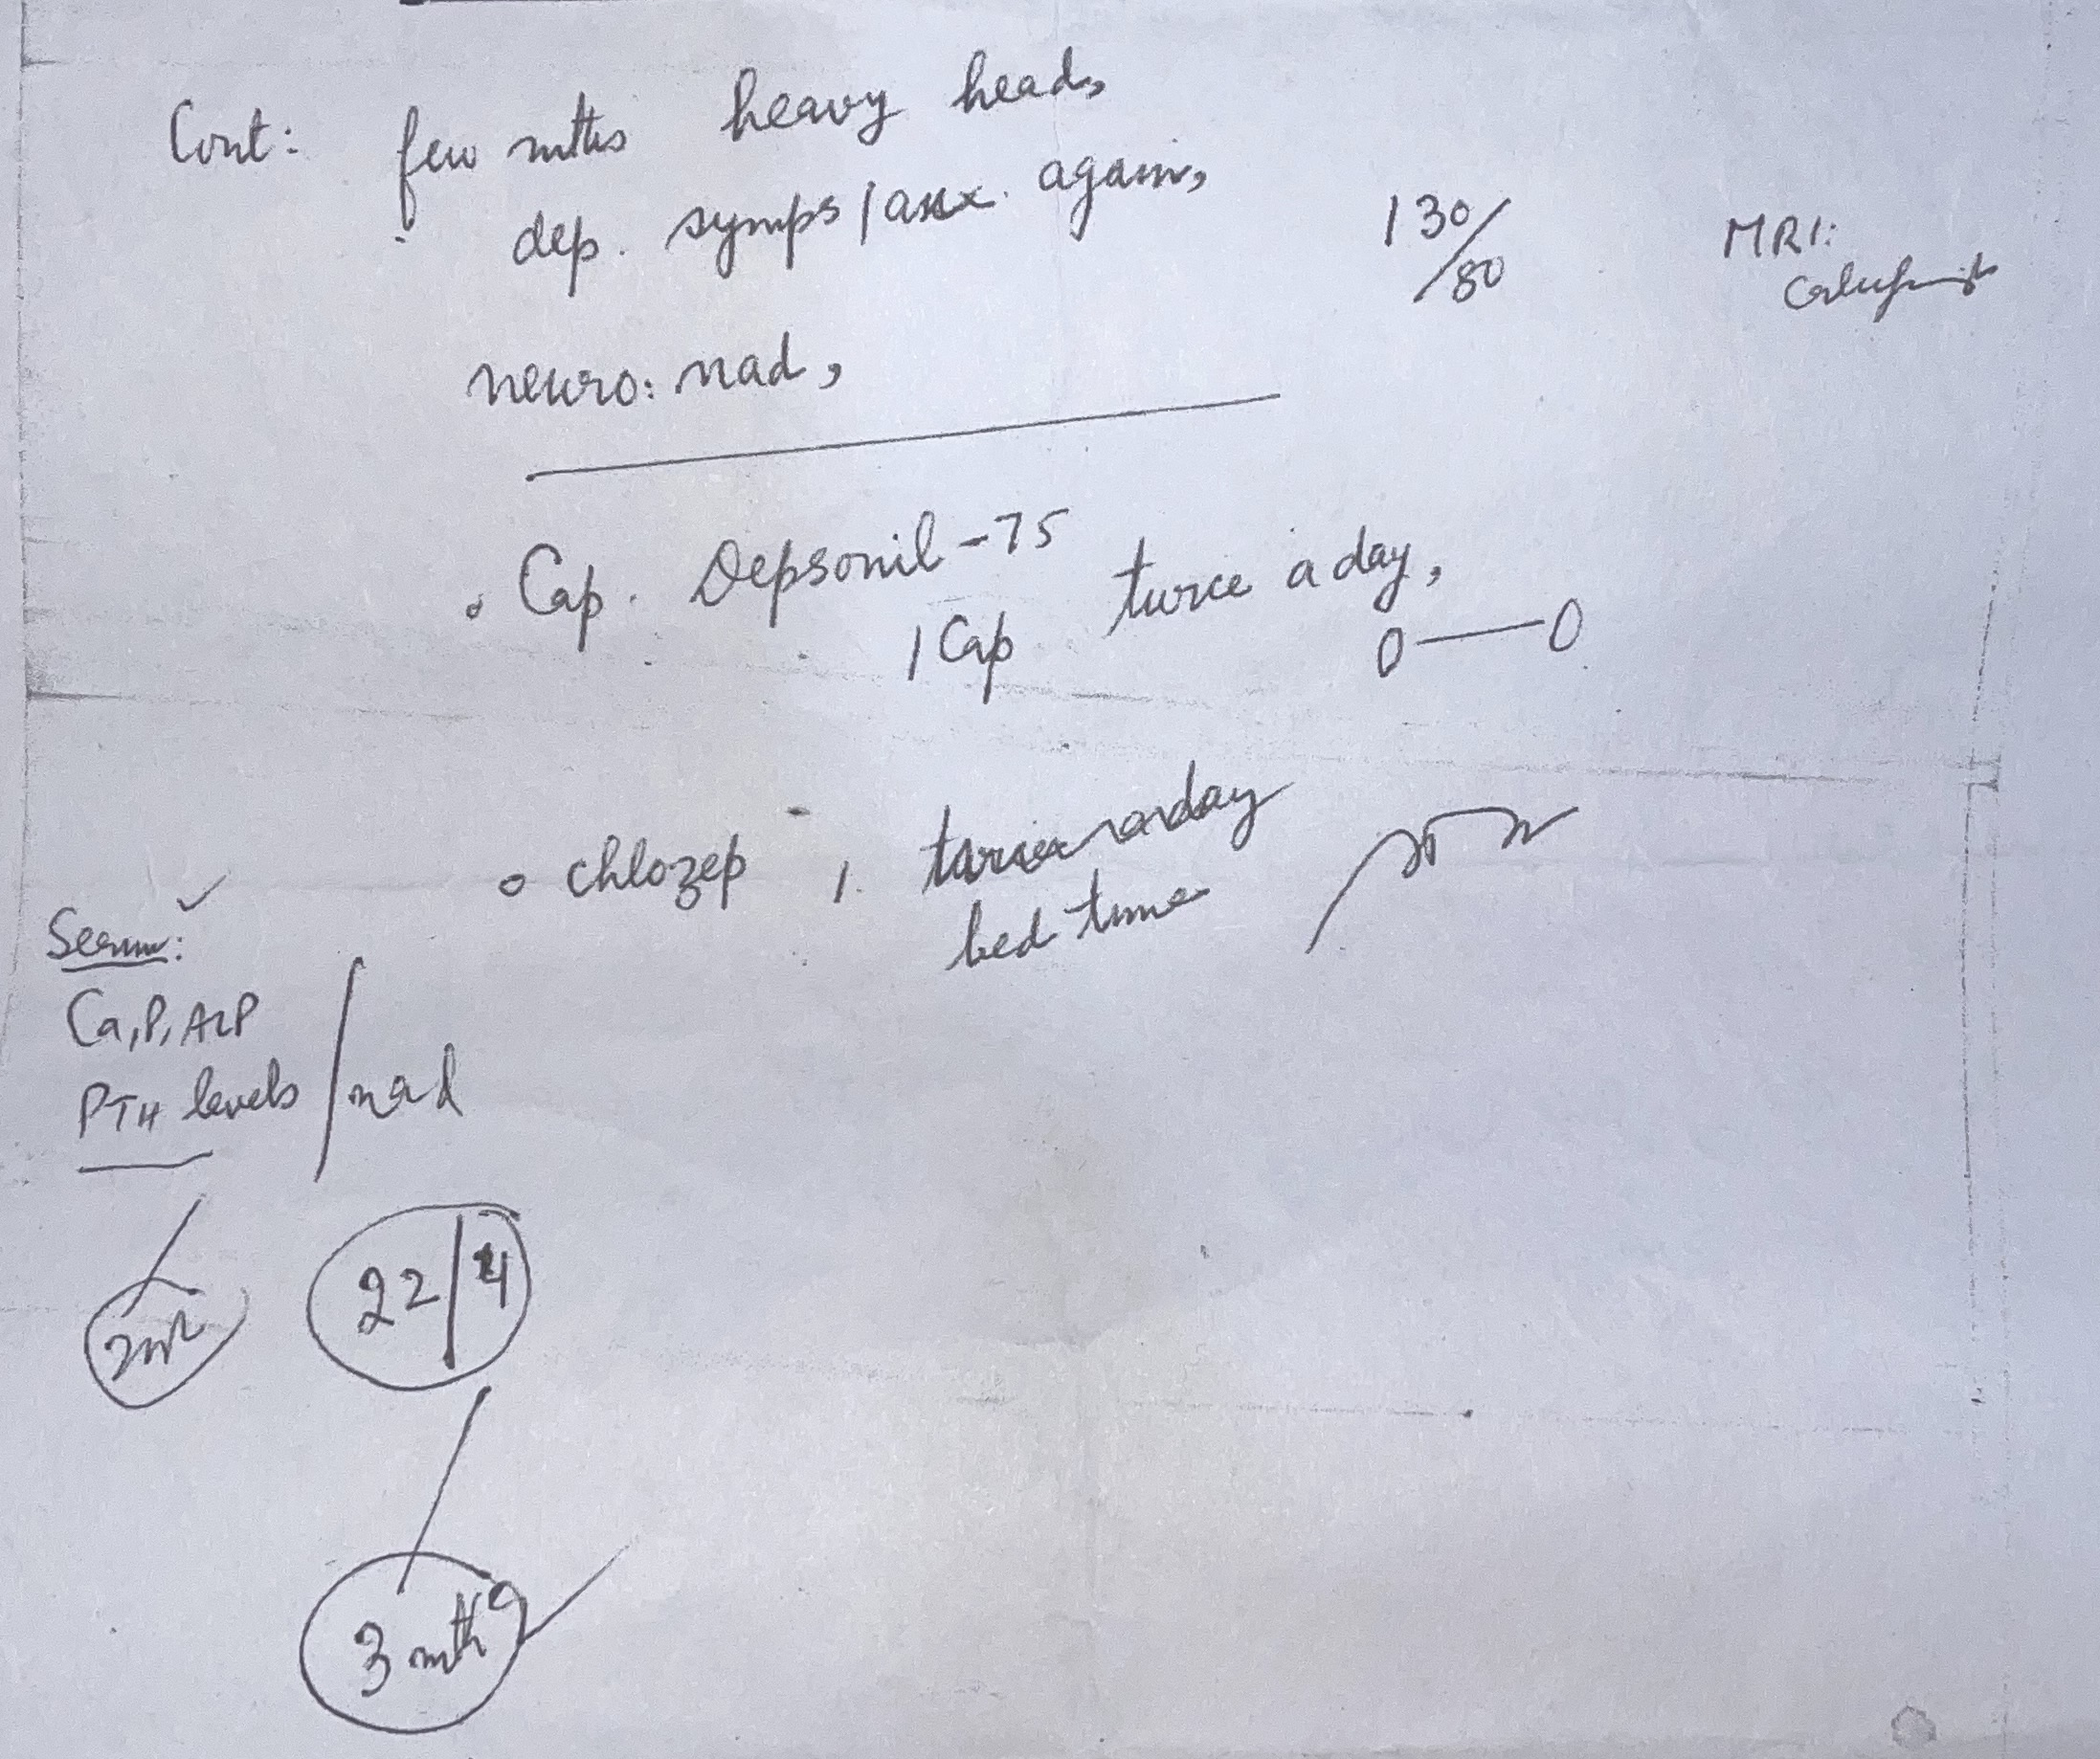 Cont: few mths heavy head,
dep. symps / anx. again,
130/80
MRI:
neuro: nad,
Cap. Depsonil-75
1 Cap twice a day,
0—0
chlozep 1. a day
bed time
Serum:
Ca, P, ALP
PTH levels / nad
22/4
3 mths